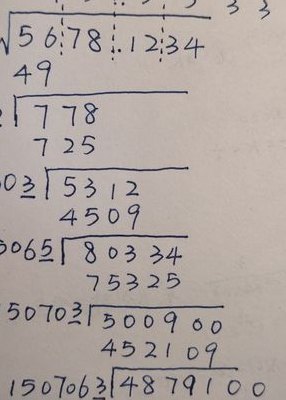 3 3
√5678.1234
49
778
725
03 5312
4509
5065 80334
75325
150703 500900
452109
1507063 4879100